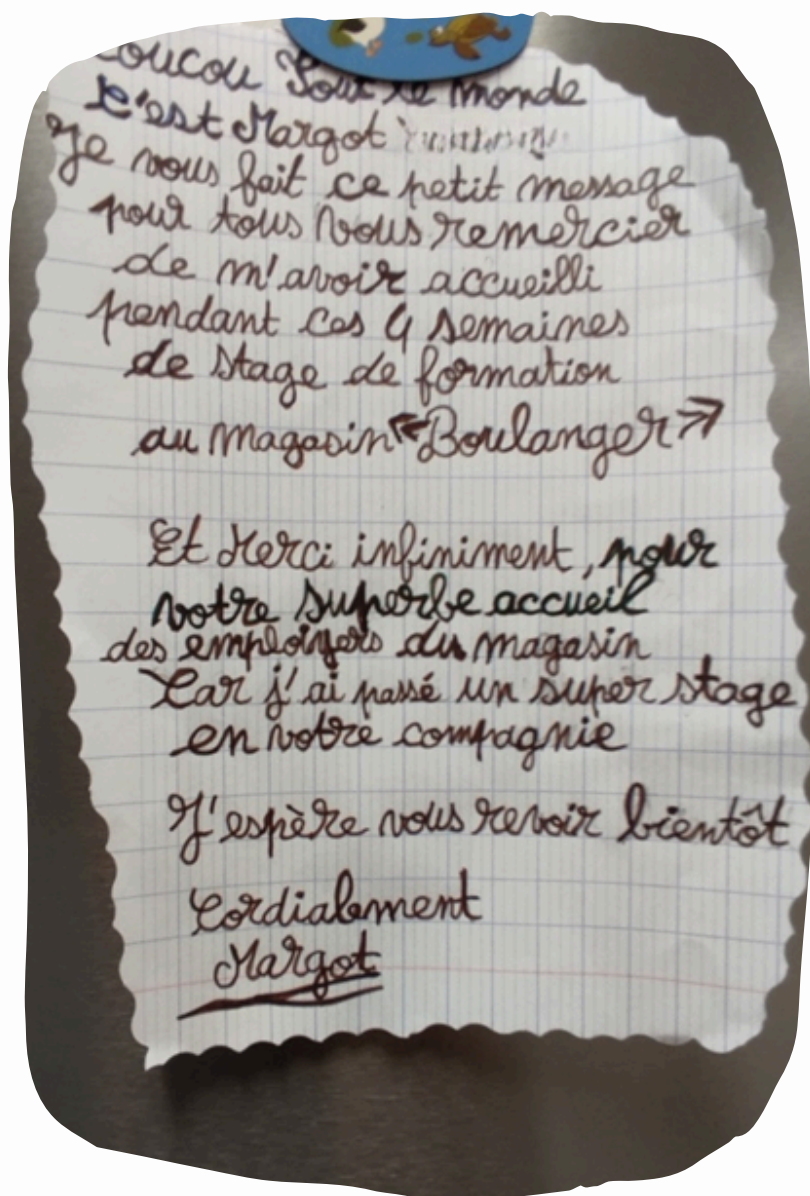 Coucou Tout le monde
C'est Margot
Je vous fait ce petit message
pour tous vous remercier
de m'avoir accueilli
pendant ces 4 semaines
de stage de formation
au magasin «Boulanger»
Et Merci infiniment, pour
votre superbe accueil
des employers du magasin
Car j'ai passé un super stage
en votre compagnie
J'espère vous revoir bientôt
Cordialement
Margot